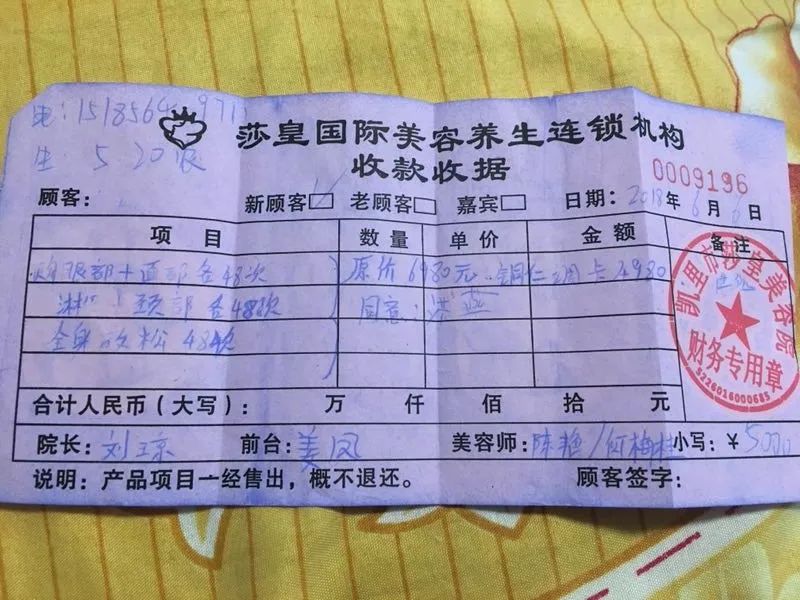 电:1518564 971
生 5 20
莎皇国际美容养生连锁机构
收款收据
0009196
顾客: 新顾客 老顾客 嘉宾 日期:2018年6月6日
项目 数量 单价 金额 备注
眼部+面部各48次 原价6980元 铜仁 卡4980
淋 颈部各48次 同意:洪燕
全身放松48次
凯里市莎皇美容院
财务专用章
5226016000685
合计人民币(大写): 万 仟 佰 拾 元
院长:刘琼 前台:美凤 美容师:陈艳/何梅桂 小写:¥5000
说明:产品项目一经售出,概不退还。 顾客签字: